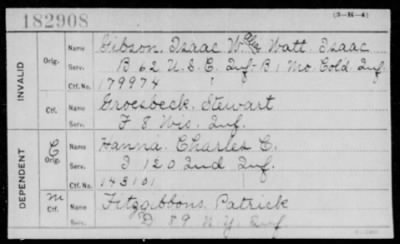 182908
(3-H-4)
INVALID
Orig.
Name Gibson, Isaac W. als Watt, Isaac
Serv. B 62 U.S.C. Inf - B 1 Mo Cold. Inf
Ctf. No. 179974
Ctf.
Name Groesbeck, Stewart
Serv. F 8 Wis. Inf.
DEPENDENT
C Orig.
Name Hanna, Charles C.
Serv. I 120 Ind Inf.
Ctf. No. 143101
M Ctf.
Name Fitzgibbons, Patrick
Serv. D 89 N.Y. Inf